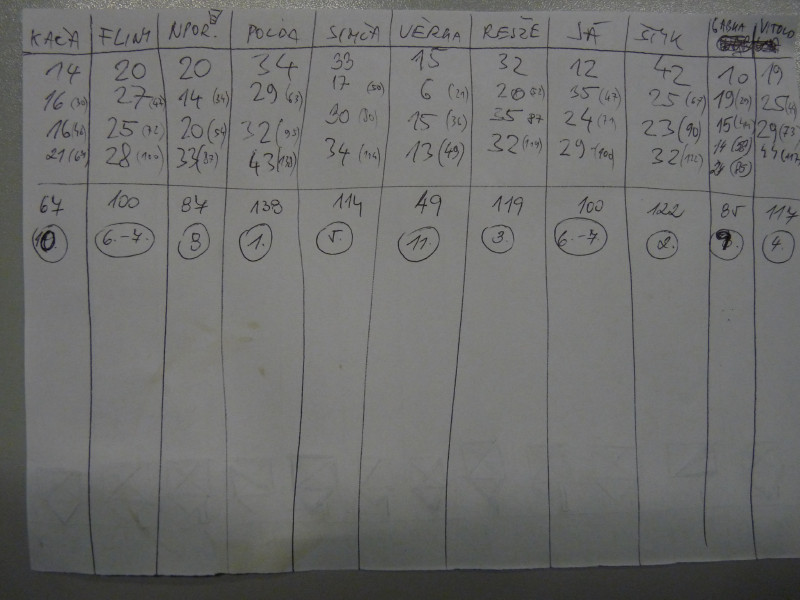 KAČA FLINT NPOR. POLDA SIMČA VĚRKA REJŽE JÁ ŠTYK GABKA VITOLD
14 20 20 34 33 15 32 12 42 10 19
16 (30) 27 (47) 14 (34) 29 (63) 17 (50) 6 (21) 20 (52) 35 (47) 25 (67) 19 (29) 25 (44)
16 (46) 25 (72) 20 (54) 32 (95) 30 (80) 15 (36) 35 87 24 (71) 23 (90) 15 (44) 29 (73)
21 (67) 28 (100) 33 (87) 43 (138) 34 (114) 13 (49) 32 (119) 29 (100) 32 (122) 14 (58) 44 (117)
67 100 87 138 114 49 119 100 122 85 117
10. 6.-7. 8 1. 5. 11. 3. 6.-7. 2. 9. 4.